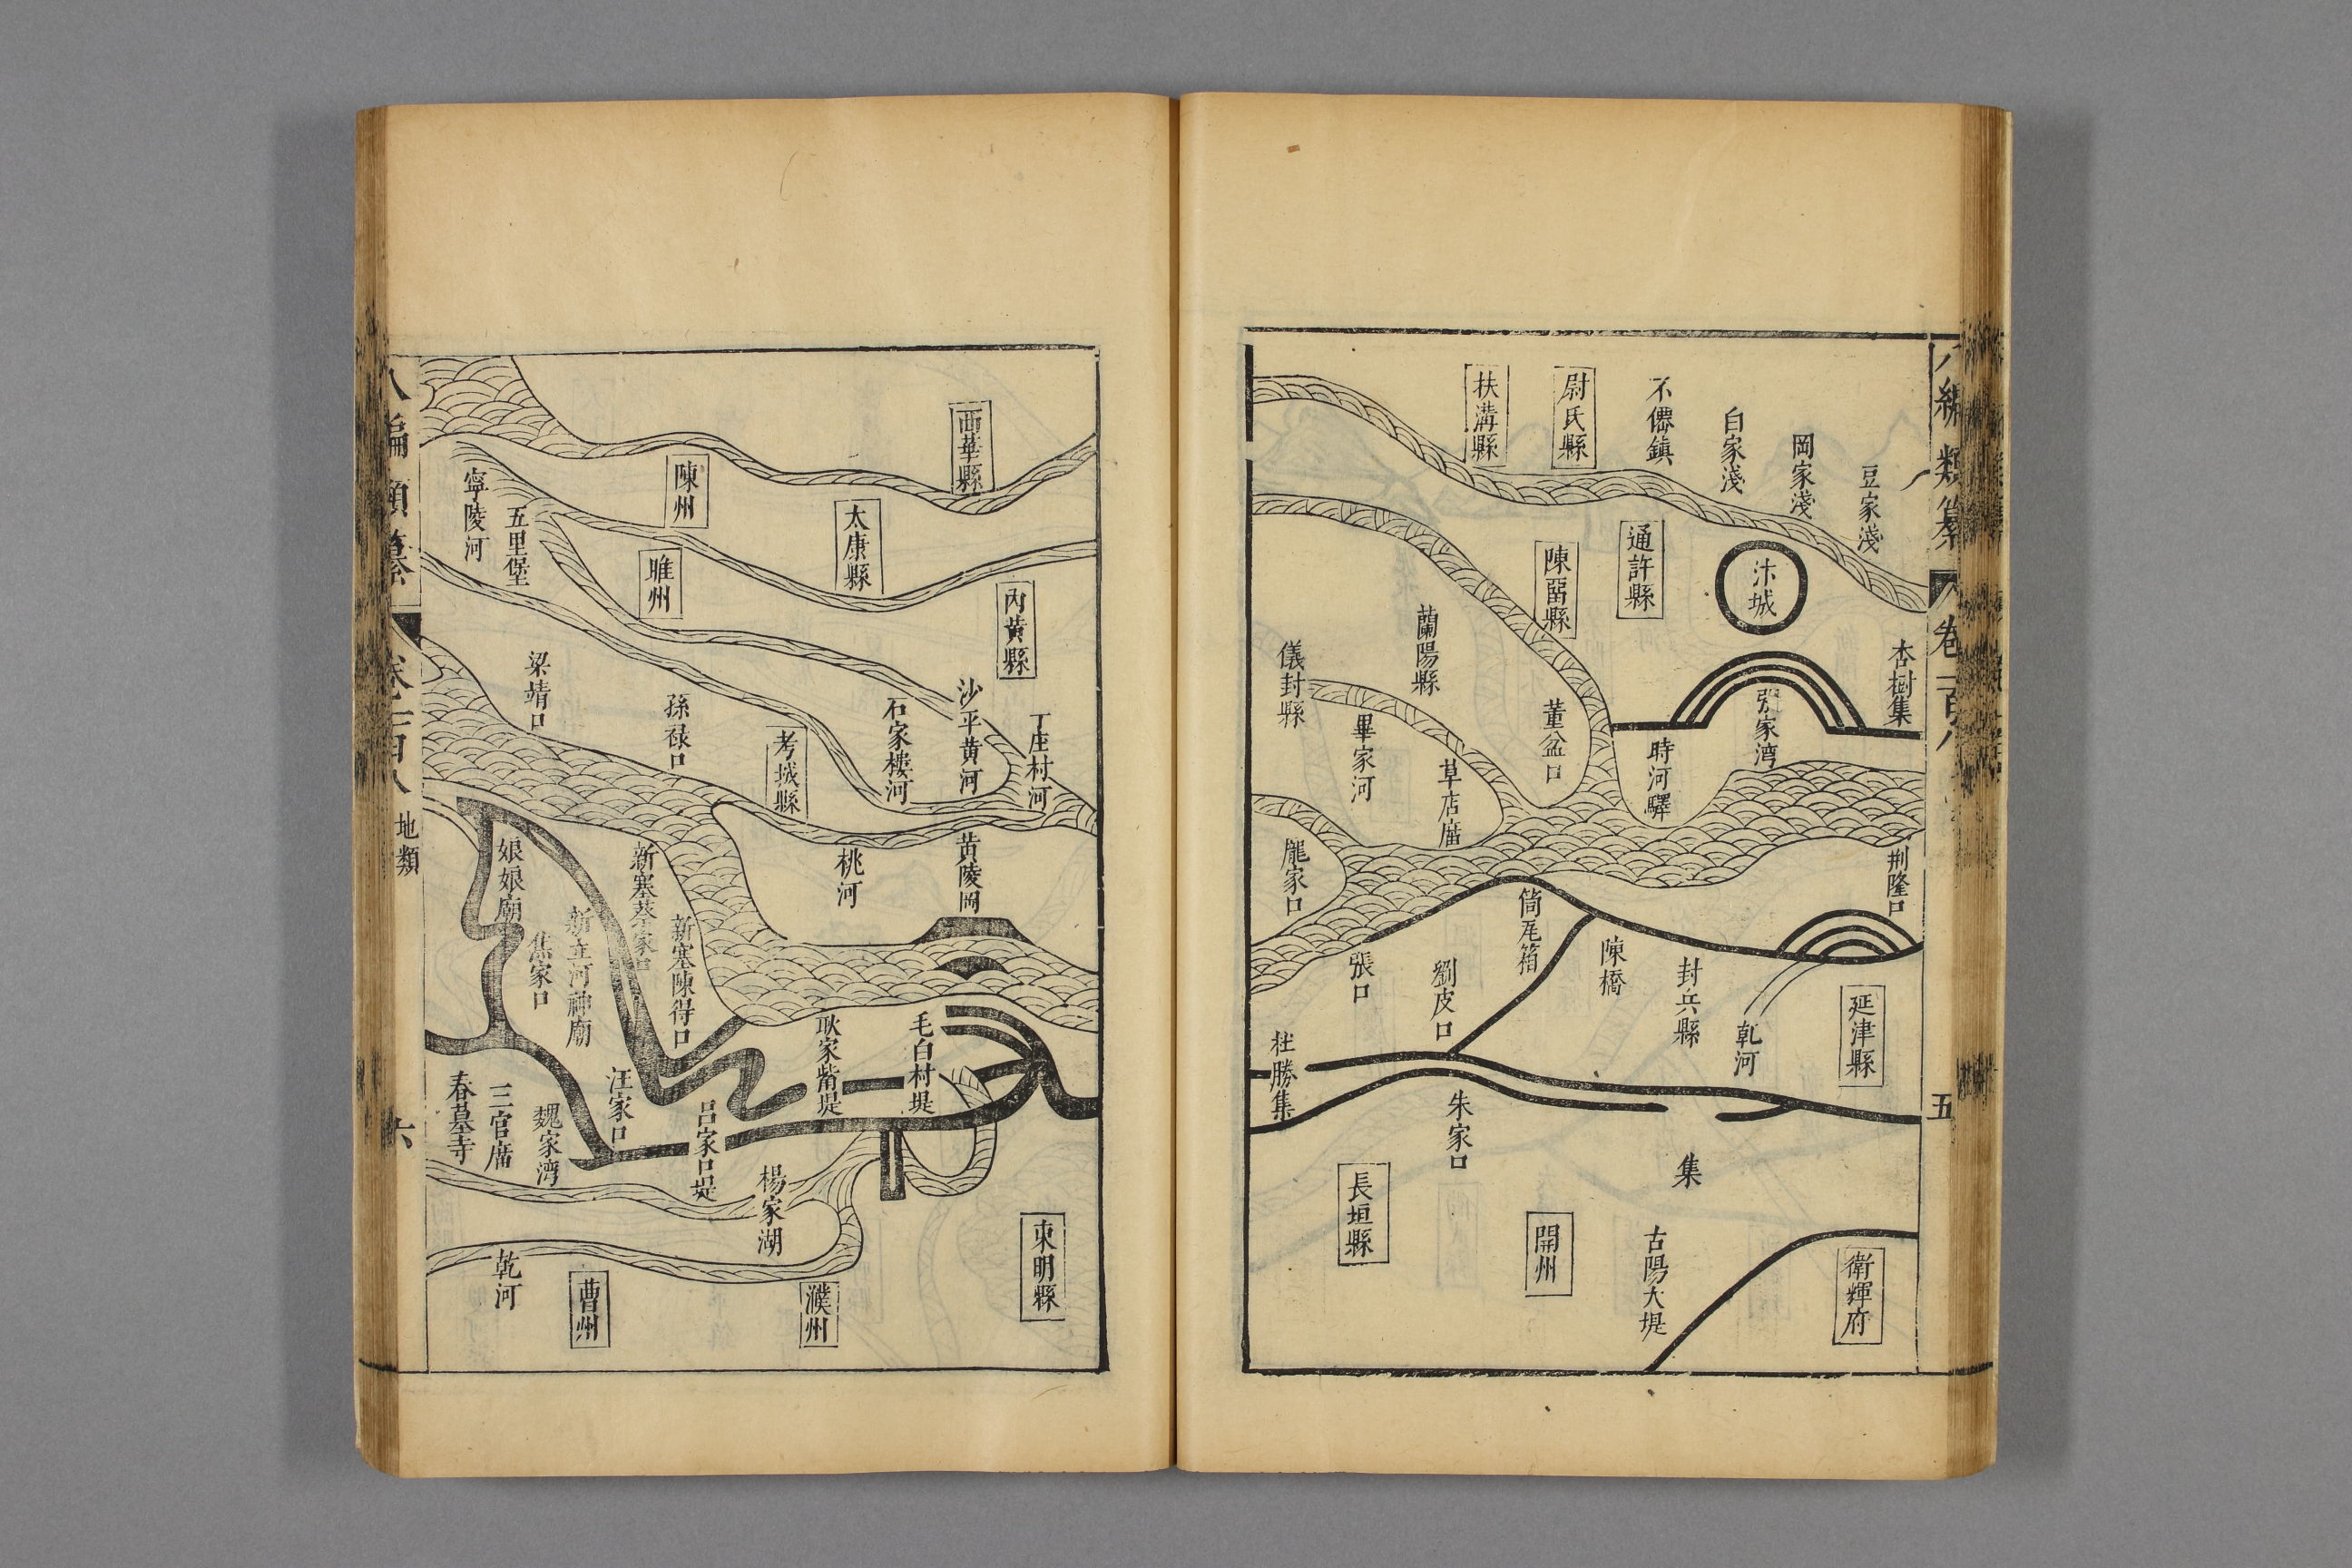 八編類纂
卷一百八
五
豆家淺
岡家淺
白家淺
不僊鎮
尉氏縣
扶溝縣
汴城
通許縣
陳畱縣
杏樹集
張家湾
時河驛
董盆口
蘭陽縣
儀封縣
草店廠
畢家河
龐家口
荆隆口
延津縣
乾河
封兵縣
陳橋
筒瓦箱
劉皮口
張口
杜勝集
朱家口
集
衛輝府
古陽大堤
開州
長垣縣
西華縣
陳州
太康縣
寧陵河
五里堡
睢州
內黄縣
丁庄村河
沙平黄河
石家樓河
考城縣
孫禄口
梁靖口
黄陵岡
桃河
新塞陳得口
新立河神廟
焦家口
娘娘廟
毛白村堤
耿家觜堤
吕家口堤
汪家口
魏家湾
三官廟
春墓寺
楊家湖
東明縣
濮州
曹州
乾河
八編類纂
卷一百八
地類
六